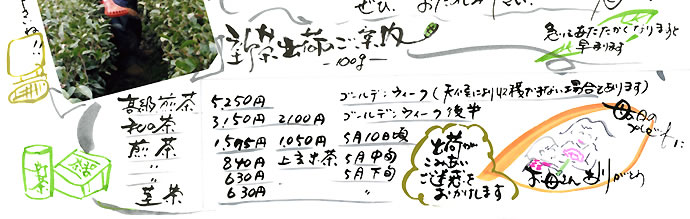 新茶出荷のご案内
―100g―
急にあたたかくなりますと
早まります
高級煎茶 5.250円 ゴールデンウィーク(天候により収穫できない場合もあります)
和の茶 3.150円 2.100円 ゴールデンウィーク後半
煎茶 1.575円 1.050円 5月10日頃
〃 840円 上玄米茶 5月中旬
〃 630円 5月下旬
茎茶 630円 〃
出荷が
こみあい
ご迷惑を
おかけします
お母さんありがとう
新茶